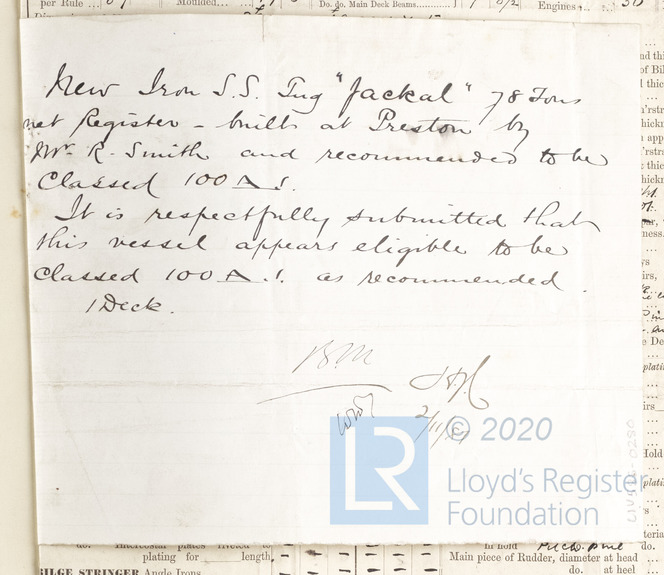 per Rule ...
Moulded...
Do. do. Main Deck Beams
Engines
New Iron S.S. Tug "Jackal" 78 Tons
net Register - built at Preston by
Mr. R. Smith and recommended to be
Classed 100 A.1.
It is respectfully submitted that
this vessel appears eligible to be
Classed 100 A.1. as recommended.
1 Deck.
B.M
© 2020
LR
Lloyd's Register
Foundation
do. Intercostal plates riveted to
plating for length,
BILGE STRINGER Angle Irons
in hold
do.
Main piece of Rudder, diameter at head
do. at heel